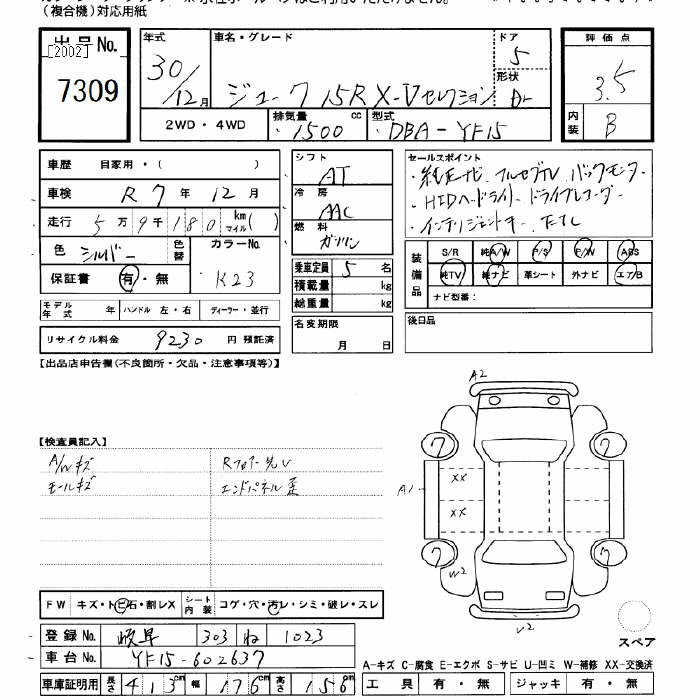 (複合機)対応用紙
出品No.
[2002]
7309
年式
30/12月
車名・グレード
ジューク 15RX-Vセレクション
ドア
5
形状
Dr
評価点
3.5
内装
B
2WD・4WD
排気量 1500 cc
型式 DBA-YF15
車歴 自家用・( )
車検 R7年12月
走行 5万9千180 km マイル( )
色 シルバー
色替
カラーNo.
K23
保証書 有・無
モデル年式 年
ハンドル 左・右
ディーラー・並行
リサイクル料金 9230 円 預託済
シフト
AT
冷房
AAC
燃料
ガソリン
乗車定員 5 名
積載量 kg
総重量 kg
名変期限
月 日
セールスポイント
・純正ナビ フルセグTV バックモニター
・HIDヘッドライト ドライブレコーダー
・インテリジェントキー ETC
装備品
S/R 純A/W P/S P/W ABS
純TV 純ナビ 革シート 外ナビ エアB
ナビ型番:
後日品
【出品店申告欄(不良箇所・欠品・注意事項等)】
【検査員記入】
A/Wキズ
モールキズ
Rフロアー先V
エンドパネル歪
A2
7
7
A1
XX
XX
7
7
W2
V2
スペア
FW キズ・トビ石・割レX
シート内装 コゲ・穴・汚レ・シミ・破レ・スレ
登録No. 岐阜 303 ね 1023
車台No. YF15-602637
車庫証明用 長さ 413cm 幅 176cm 高さ 156cm
A-キズ C-腐食 E-エクボ S-サビ U-凹ミ W-補修 XX-交換済
工具 有・無 ジャッキ 有・無